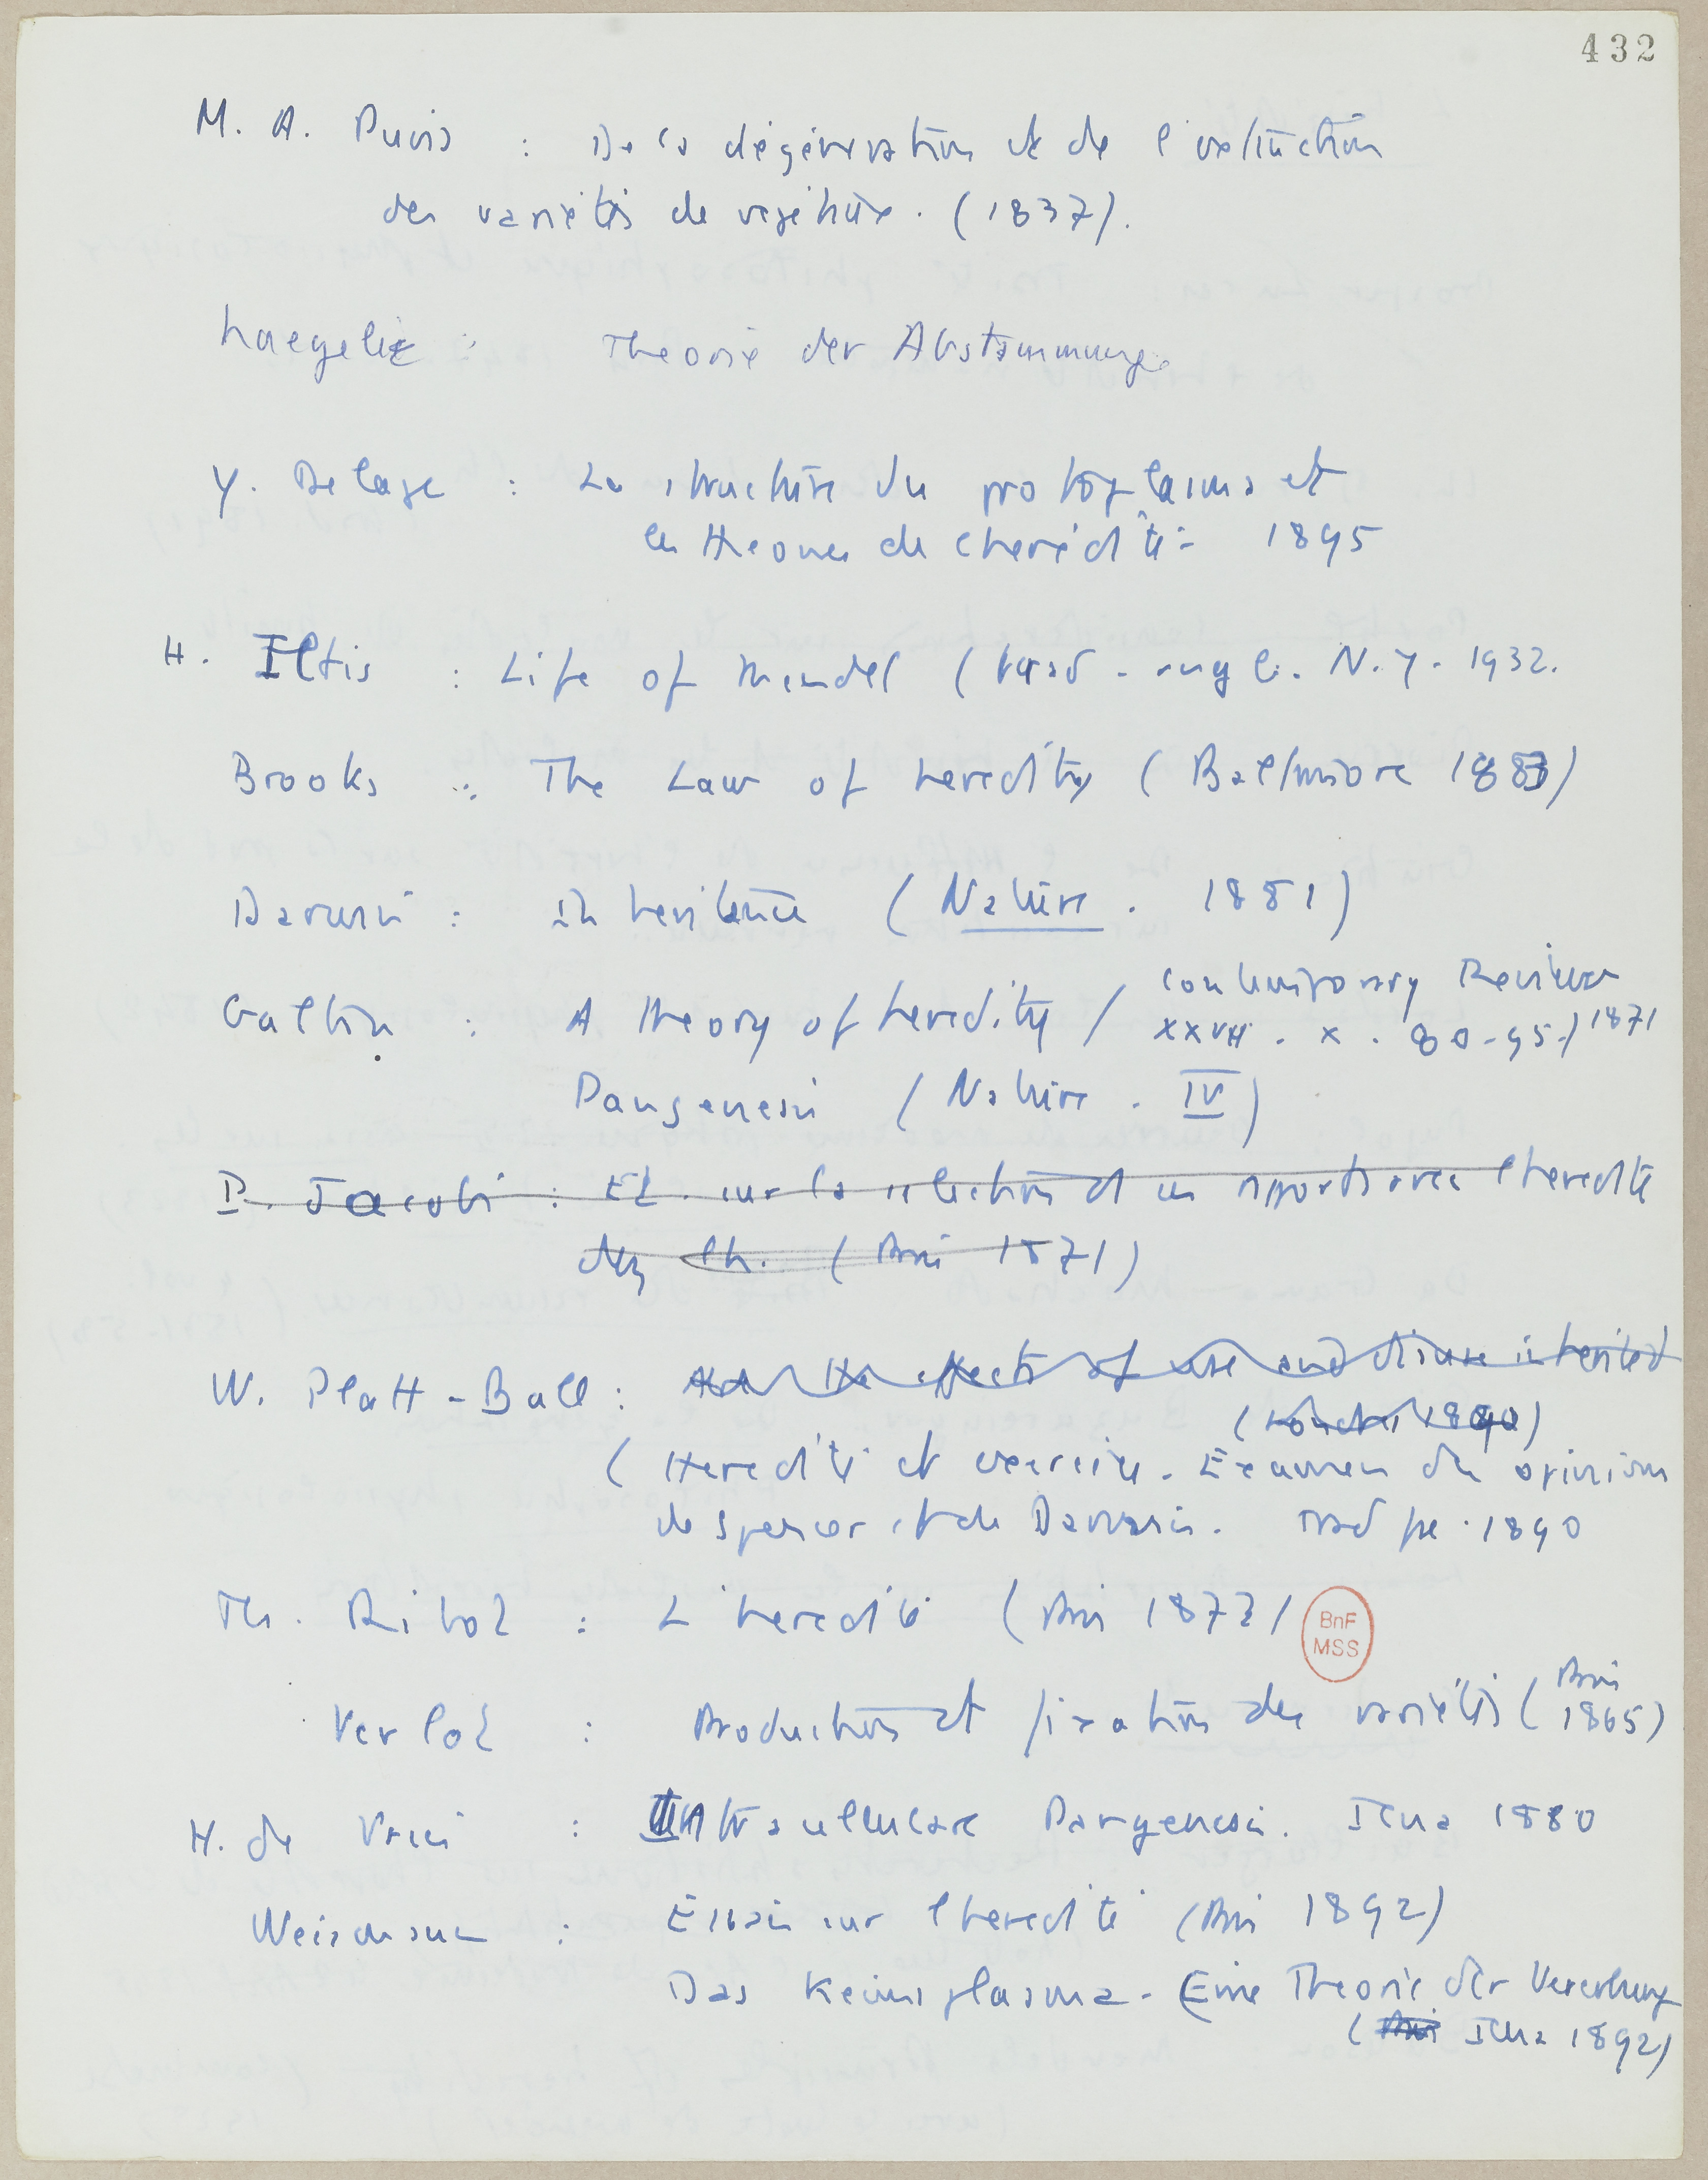 432
M. A. Puvis : De la dégénération et de l'extinction
des variétés de végétaux. (1837).
Naegelie : Theorie der Abstammung.
Y. Delage : La structure du protoplasma et
les theories de l'hérédité 1895
H. Iltis : Life of Mendel (trad. angl. N.Y. 1932.
Brooks : The Law of heredity (Baltimore 1883)
Darwin : Inheritance (Nature. 1881)
Galton : A theory of heredity / Contemporary Review
XXVII. X. 80-95.) 1871
Pangenesis (Nature. IV)
P. Jacobi : Et. sur la selection et ses rapports avec l'heredite
chez l'h. (Paris 1871)
W. Platt-Ball : Are the effects of use and disuse inherited
(Londres 1890)
(Heredité et exercice. Examen des opinions
de Spencer et de Darwin. trad fse. 1890
Th. Ribot : L'heredité (Paris 1873)
BnF
MSS
Verlot : Production et fixation des variétés (Paris
1865)
H. de Vries : Intracellulare Pangenesis. Iena 1880
Weismann : Essais sur l'heredité (Paris 1892)
Das Keimplasma. (Eine Theorie der Vererbung
(Paris Iena 1892)